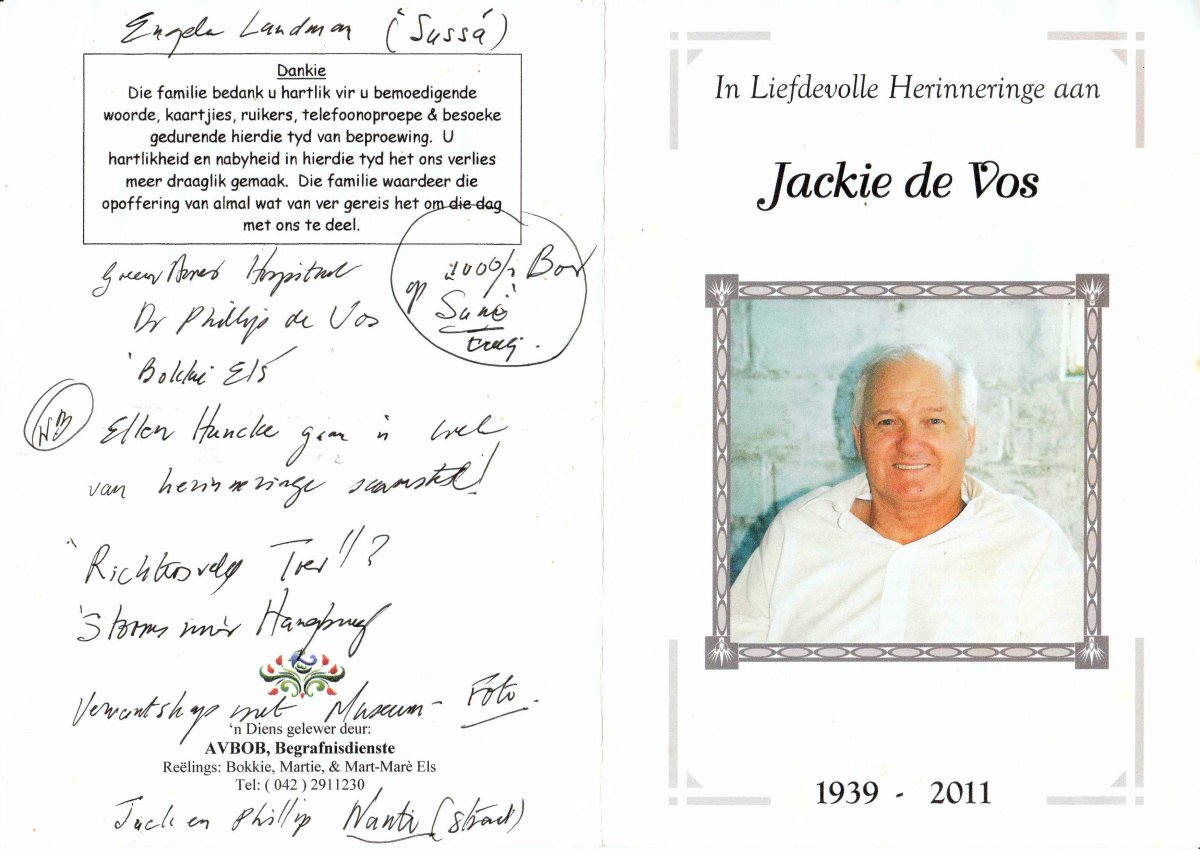 Engela Landman ("Sussá")
Dankie
Die familie bedank u hartlik vir u bemoedigende
woorde, kaartjies, ruikers, telefoonoproepe & besoeke
gedurende hierdie tyd van beproewing. U
hartlikheid en nabyheid in hierdie tyd het ons verlies
meer draaglik gemaak. Die familie waardeer die
opoffering van almal wat van ver gereis het om die dag
met ons te deel.
op
Hospitaal
Dr Phillip de Vos
Bokkie Els
NB
Ellen Huncke gaan 'n
van herinneringe
"Richtersveld Toer"?
Verwantskap met Museum - Foto.
'n Diens gelewer deur:
AVBOB, Begrafnisdienste
Reëlings: Bokkie, Martie, & Mart-Marè Els
Tel: ( 042 ) 2911230
Jack en Phillip Nanti
In Liefdevolle Herinneringe aan
Jackie de Vos
1939 - 2011